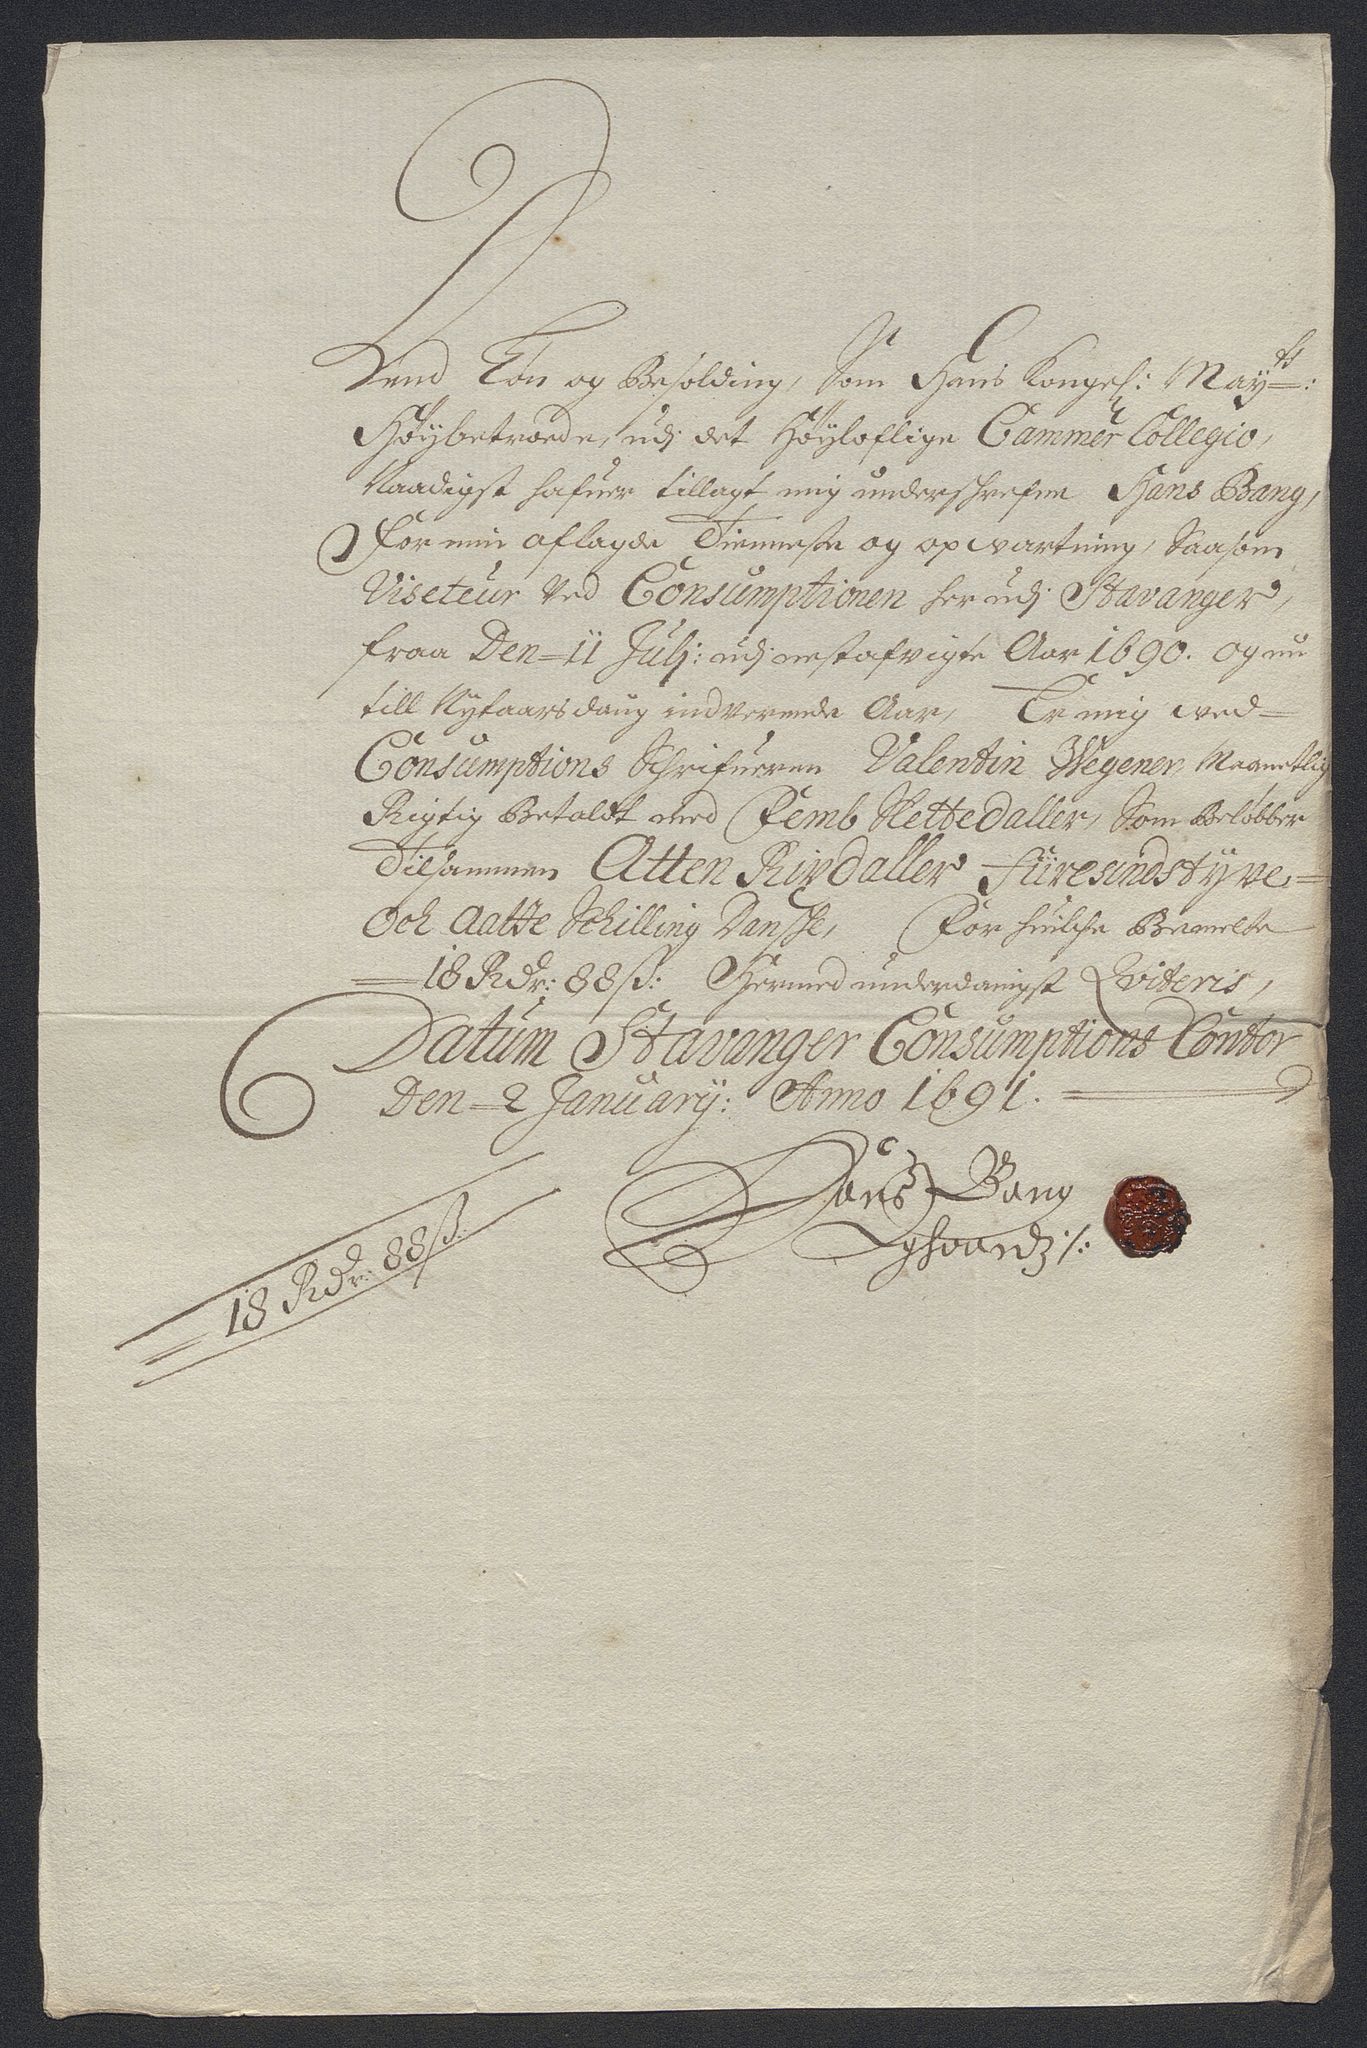 Dend Løn og Besolding, Som Hans Kongel: Mayts:
Høybetroede, udj det Høyloflige Cammer Collegio,
Naadigst hafuer tillagt mig underschrefne Hans Bang,
For min aflagde Tienneste og opvartning, Saasom
Viseteur Ved Consumptionen her udj Stavanger,
fraa Den 11 Julj: udj nestafvigte Aar 1690. og nu
till Nytaarsdaug indverende Aar, Er mig ved
Consumptions Schrifueren Valentin Wegener, Maanetlig
Rigtig Betaldt med Femb Slette Daller, Som Beløbber
Tilsammen Atten Rixdaller fiiresindstyve
Och Aatte Schilling Danske, For huilche Bemelte
18 Rdr: 88 ß: Hermed underdanigst Qviteris,
Datum Stavanger Consumptions Contor
Den 2 January: Anno 1691.
Hans Bang
Eghaandz /:
18 Rdr: 88 ß: